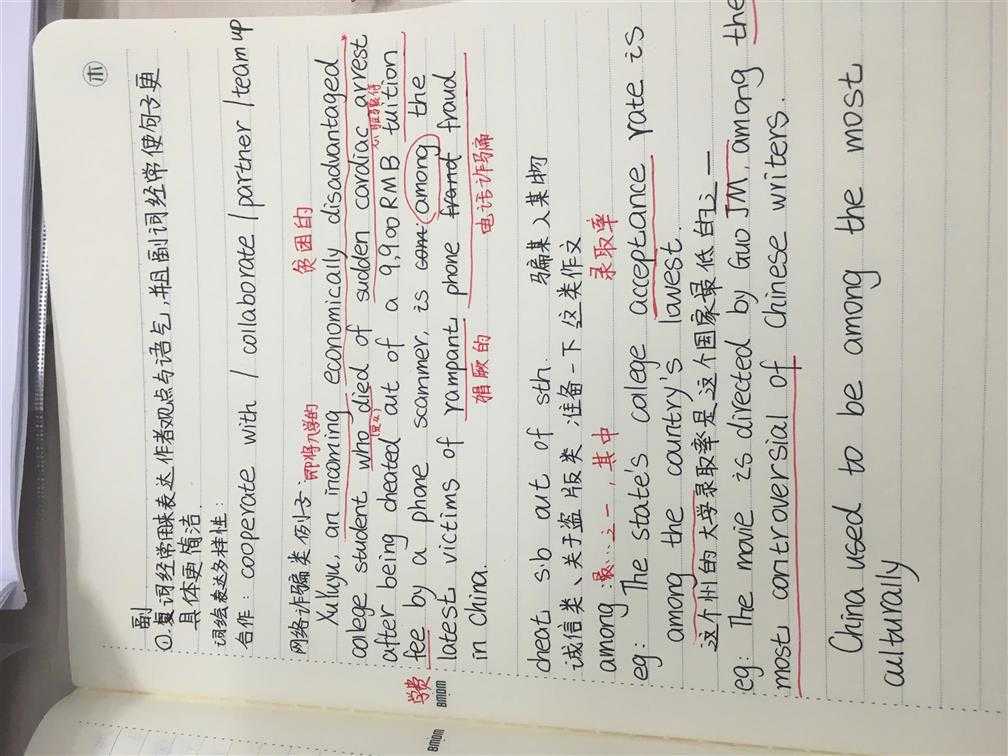 木
副
①.复词经常用来表达作者观点与语气,并且副词经常使句子更
具体更简洁.
词绘表达多样性:
合作: cooperate with / collaborate / partner / team up
网络诈骗类例子: 即将入学的 贫困的
Xu Yuyu, an incoming economically disadvantaged
college student who died of sudden cardiac arrest
心脏骤停
after being cheated out of a 9,900 RMB tuition
学费 fee by a phone scammer, is com among the
latest victims of rampant phone frand fraud
猖厥的 电话诈骗
in China.
cheat s.b out of sth. 骗某人某物
诚信类、关于盗版类 准备一下这类作文
among: 最…之一, 其中 录取率
eg: The state's college acceptance rate is
among the country's lowest.
这个州的大学录取率是这个国家最低的之一
eg: The movie is directed by Guo JM, among the
most controversial of Chinese writers.
China used to be among the most
culturally
BMOM
BMOM